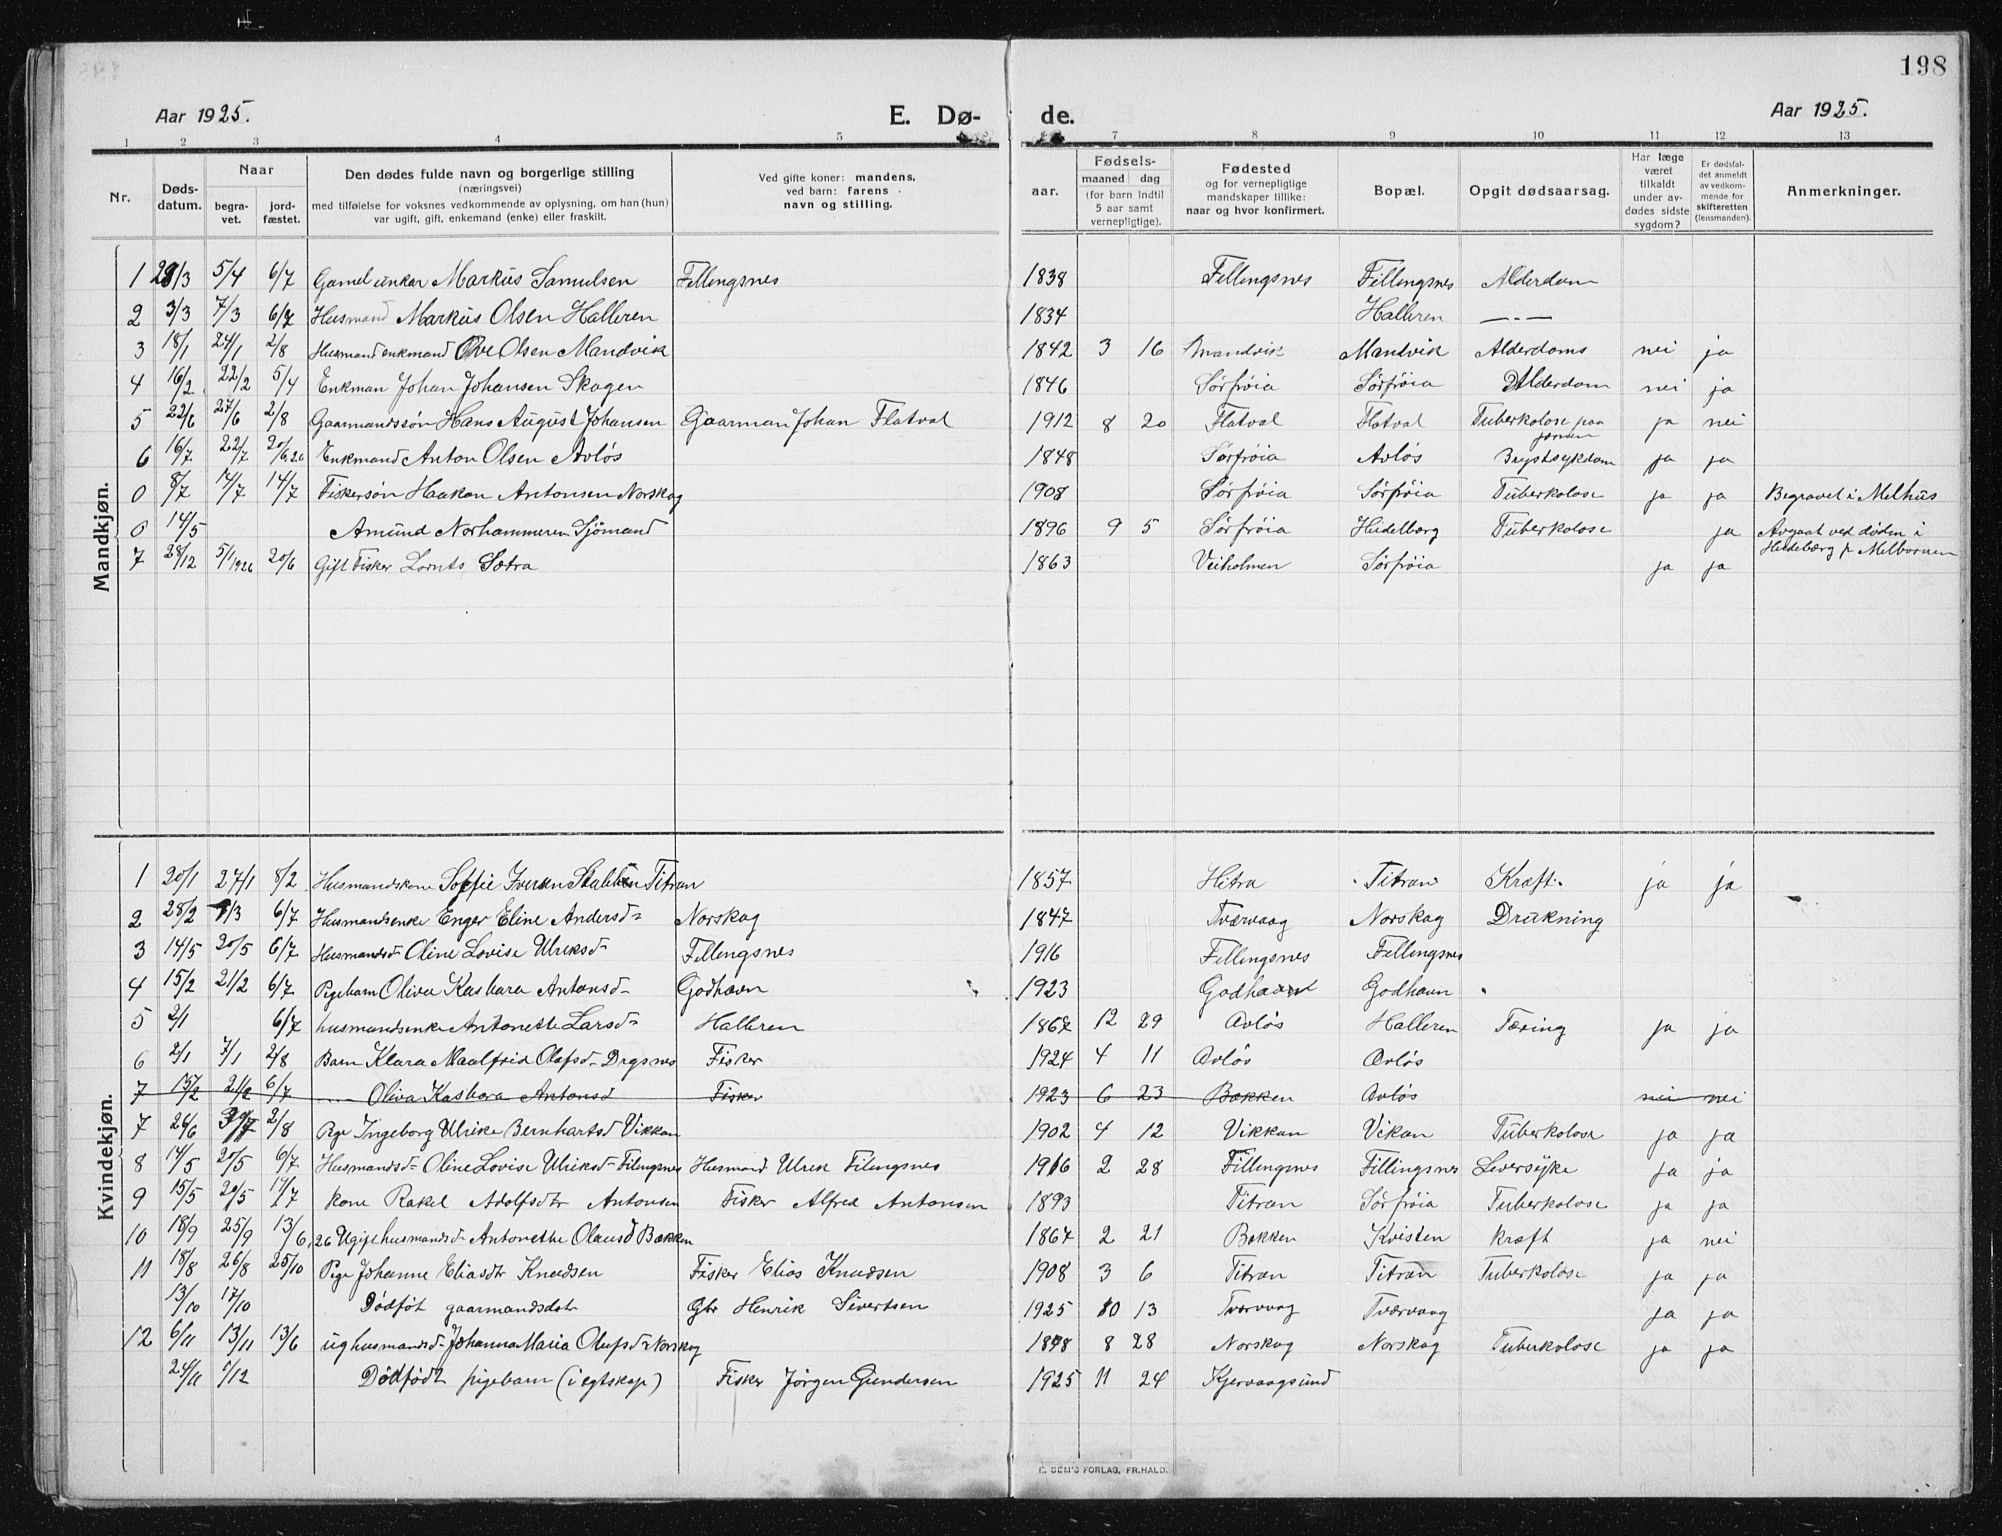 198
Aar 1925. E. Dø- de. Aar 1925.
1 2 3 4 5 7 8 9 10 11 12 13
Nr. Døds-datum. Naar begra-vet. jord-fæstet. Den dødes fulde navn og borgerlige stilling (næringsvei) med tilføielse for voksnes vedkommende av oplysning, om han (hun) var ugift, gift, enkemand (enke) eller fraskilt. Ved gifte koner: mandens, ved barn: farens navn og stilling. aar. Fødsels- maaned dag (for barn indtil 5 aar samt vernepligtige). Fødested og for vernepligtige mandskaper tillike: naar og hvor konfirmert. Bopæl. Opgit dødsaarsag. Har læge været tilkaldt under av-dødes sidste sygdom? Er dødsfal-det anmeldt av vedkom-mende for skifteretten (lensmanden). Anmerkninger.
Mandkjøn.
1 28/3 5/4 6/7 Markus Samulsen Fillengsnes 1838 Fillengsnes Fillengsnes Alderdom
2 3/3 7/3 6/7 Husmand Markus Olsen Halleren 1834 Halleren — · —
3 18/1 24/1 2/8 Husmand enkmand Ove Olsen Mandvik 1842 3 16 Mandvik Mandvik Alderdoms nei ja
4 16/2 22/2 5/4 Enkman Johan Johansen Skagen 1846 Sörfröia Sörfröia Alderdom nei ja
5 22/6 27/6 2/8 Gaarmandssøn Hans August Johansen Gaarman Johan Flatval 1912 8 20 Flatval Flatval Tuberkolose paa ja nei
6 16/7 22/7 20/6.26 Enkmand Anton Olsen Avløs 1848 Sørfrøia Avløs Brystsykdom ja ja
0 8/7 14/7 14/7 Fiskersøn Haakon Antonsen Norskag 1908 Sørfrøia Sørfrøia Tuberkolose ja ja Begravet i Melhus
0 14/5 Amund Norhammeren Sjömand 1896 9 5 Sørfröia Heidelberg Tuberkolose ja Avgaat ved døden i
Heidebærg p Melbornen
7 28/12 5/1 1926 20/6 Gift Fisker Lornts Sætra 1863 Veiholmen Sörfröia ja ja
Kvindekjøn.
1 20/1 27/1 8/2 Husmandskone Soffie Iversen Titran 1857 Hitra Titran Kræft. ja ja
2 28/2 /3 6/7 Husmandsenke Enger Eline Andersd- Norskag 1847 Tværvaag Norskag Drukning
3 14/5 20/5 6/7 Husmandsd- Oline Lovise Ulriksd- Fillengsnes 1916 Fillengsnes Fillengsnes
4 15/2 21/2 6/7 Pigebarn Oliva Kasbara Antonsd- Godhavn 1923 Godhavn Godhavn
5 2/1 6/7 husmandsenke Antonette Larsd- Halleren 1867 12 29 Avløs Halleren Tæring ja ja
6 2/1 7/1 2/8 Barn Klara Maalfrid Olafsd- Drgsnes Fisker 1924 4 11 Avløs Avløs
7 15/2 21/2 6/7 Oliva Kasbara Antonsd Fisker 1923 6 23 Bakken Avløs nei nei
7 26/6 2/8 Pige Ingeborg Ulrike Bernhartsd Vikkan 1902 4 12 Vikkan Vikan Tuberkolose ja ja
8 14/5 20/5 6/7 Husmandsd- Oline Lovise Ulriksd- Filengsnes Husmand Ulrik Filengsnes 1916 2 28 Fillengsnes Fillingsnes Leversyke ja ja
9 15/5 20/5 17/7 kone Rakel Adolfsdtr Antonsen Fisker Alfred Antonsen 1893 Titran Sørfrøia Tuberkolose ja ja
10 18/9 25/9 13/6 26 Ugift husmandsd- Antonette Olausd Bakken 1867 2 21 Bakken Kvisten kræft ja nei
11 18/8 26/8 25/10 Pige Johanne Eliasdtr Knudsen Fisker Elias Knudsen 1908 3 6 Titran Titran Tuberkolose ja ja
13/10 17/10 Dødføt gaarmandsdatr Gbr Henrik Sivertsen 1925 10 13 Tværvaag Tværvaag ja ja
12 6/11 13/11 13/6 ug husmandsd- Johanna Maria Olufsd- Norskag 1898 8 28 Norskag Norskag Tuberkolose ja ja
24/11 1/12 Dødfødt pigebarn (i egtskap) Fisker Jørgen Gundersen 1925 11 24 Kjervaagsund
FORLAG, FR.HALD.